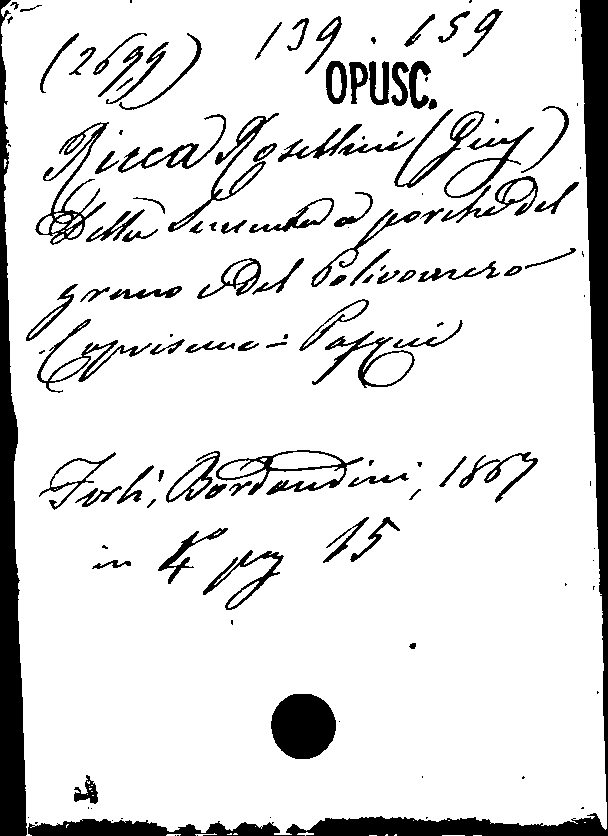 (2699) 139.159
OPUSC.
Ricca Rosellini (Gius)
Della Sementa a porche del
grano e del Polivomero
Coprisema-Pasqui
Forlì, Bordandini, 1867
in 4º pag 15